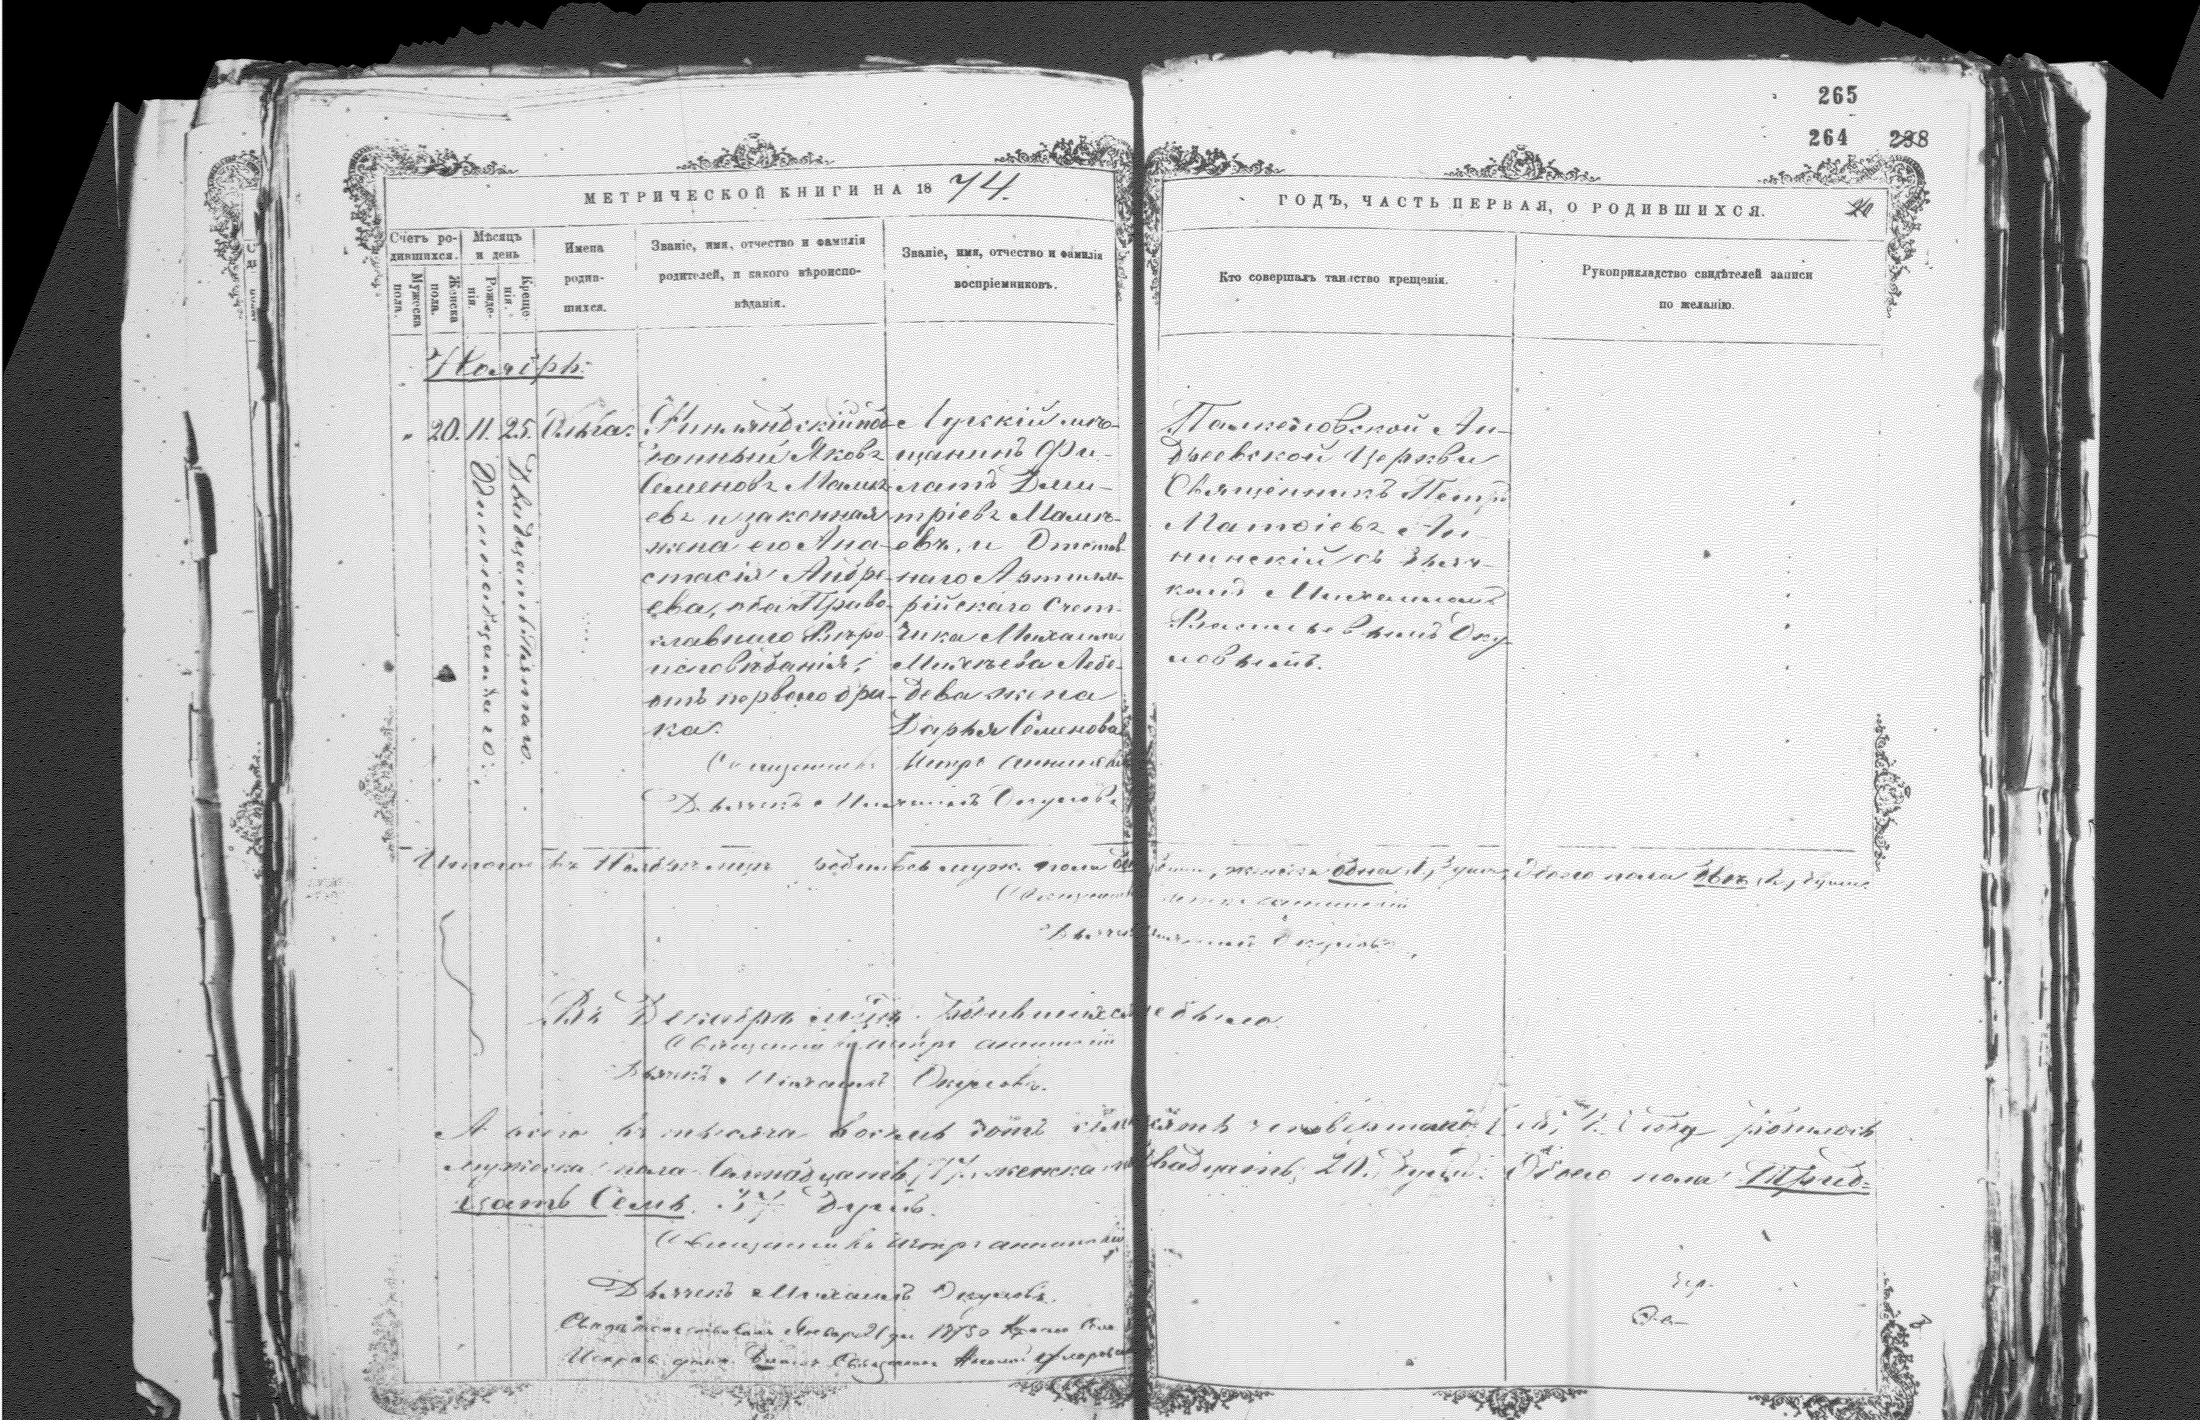 265
264 238
МЕТРИЧЕСКОЙ КНИГИ НА 18 74.
ГОДЪ, ЧАСТЬ ПЕРВАЯ, О РОДИВШИХСЯ.
Счетъ ро-
дившихся.
Мужеска
пола.
Женска
пола.
Мѣсяцъ
и день
Рожде-
нія.
Креще-
нія.
Имена
родив-
шихся.
Званіе, имя, отчество и фамилія
родителей, и какого вѣроиспо-
вѣданія.
Званіе, имя, отчество и фамилія
воспріемниковъ.
Кто совершалъ таинство крещенія.
Рукоприкладство свидѣтелей записи
по желанію.
Ноябрь.
" 20. 11. 25. Ольга.
Одиннадцатаго.
Двадцать пятаго.
Финляндскій под-
данный Яковъ
Семеновъ Малык-
евъ и законная
жена его Ана-
стасія Андре-
ева, оба Право-
славнаго Вѣро
исповѣданія;
отъ перваго бра-
ка.
Лужскій мѣ-
щанинъ Фи-
латъ Дми-
тріевъ
евъ, и Отстав-
наго Артилле-
рійскаго
Михаила
Михѣева Лебе-
дева жена
Дарья Семенова
Андреевской Церкви
Священникъ Петръ
Матѳіевъ Ан-
нинскій съ Дьяч-
комъ Михаиломъ
Васильевымъ Оку-
ловымъ.
Священникъ Петръ Аннинскій
Дьячекъ Михаилъ Окуловъ
Итого въ Ноябрѣ родилось муж. пола женска одна 1, Обоего пола двѣ
Священникъ Петръ Аннинскій
Дьячекъ Михаилъ Окуловъ
Въ Декабрѣ мѣсяцѣ родившихся не было
Священникъ Петръ Аннинскій
Дьячекъ Михаилъ Окуловъ.
А всего въ тысяча восемь сотъ семьдесятъ четвертомъ году родилось
мужеска пола Семнадцать, 17. женска Двадцать, 20. душъ. Обоего пола Трид-
цать Семь. 37 Душъ.
Священникъ Петръ Аннинскій
Дьячекъ Михаилъ Окуловъ.